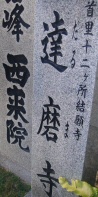 首里十二ヶ所結願寺
達磨寺
だるま
峰西来院